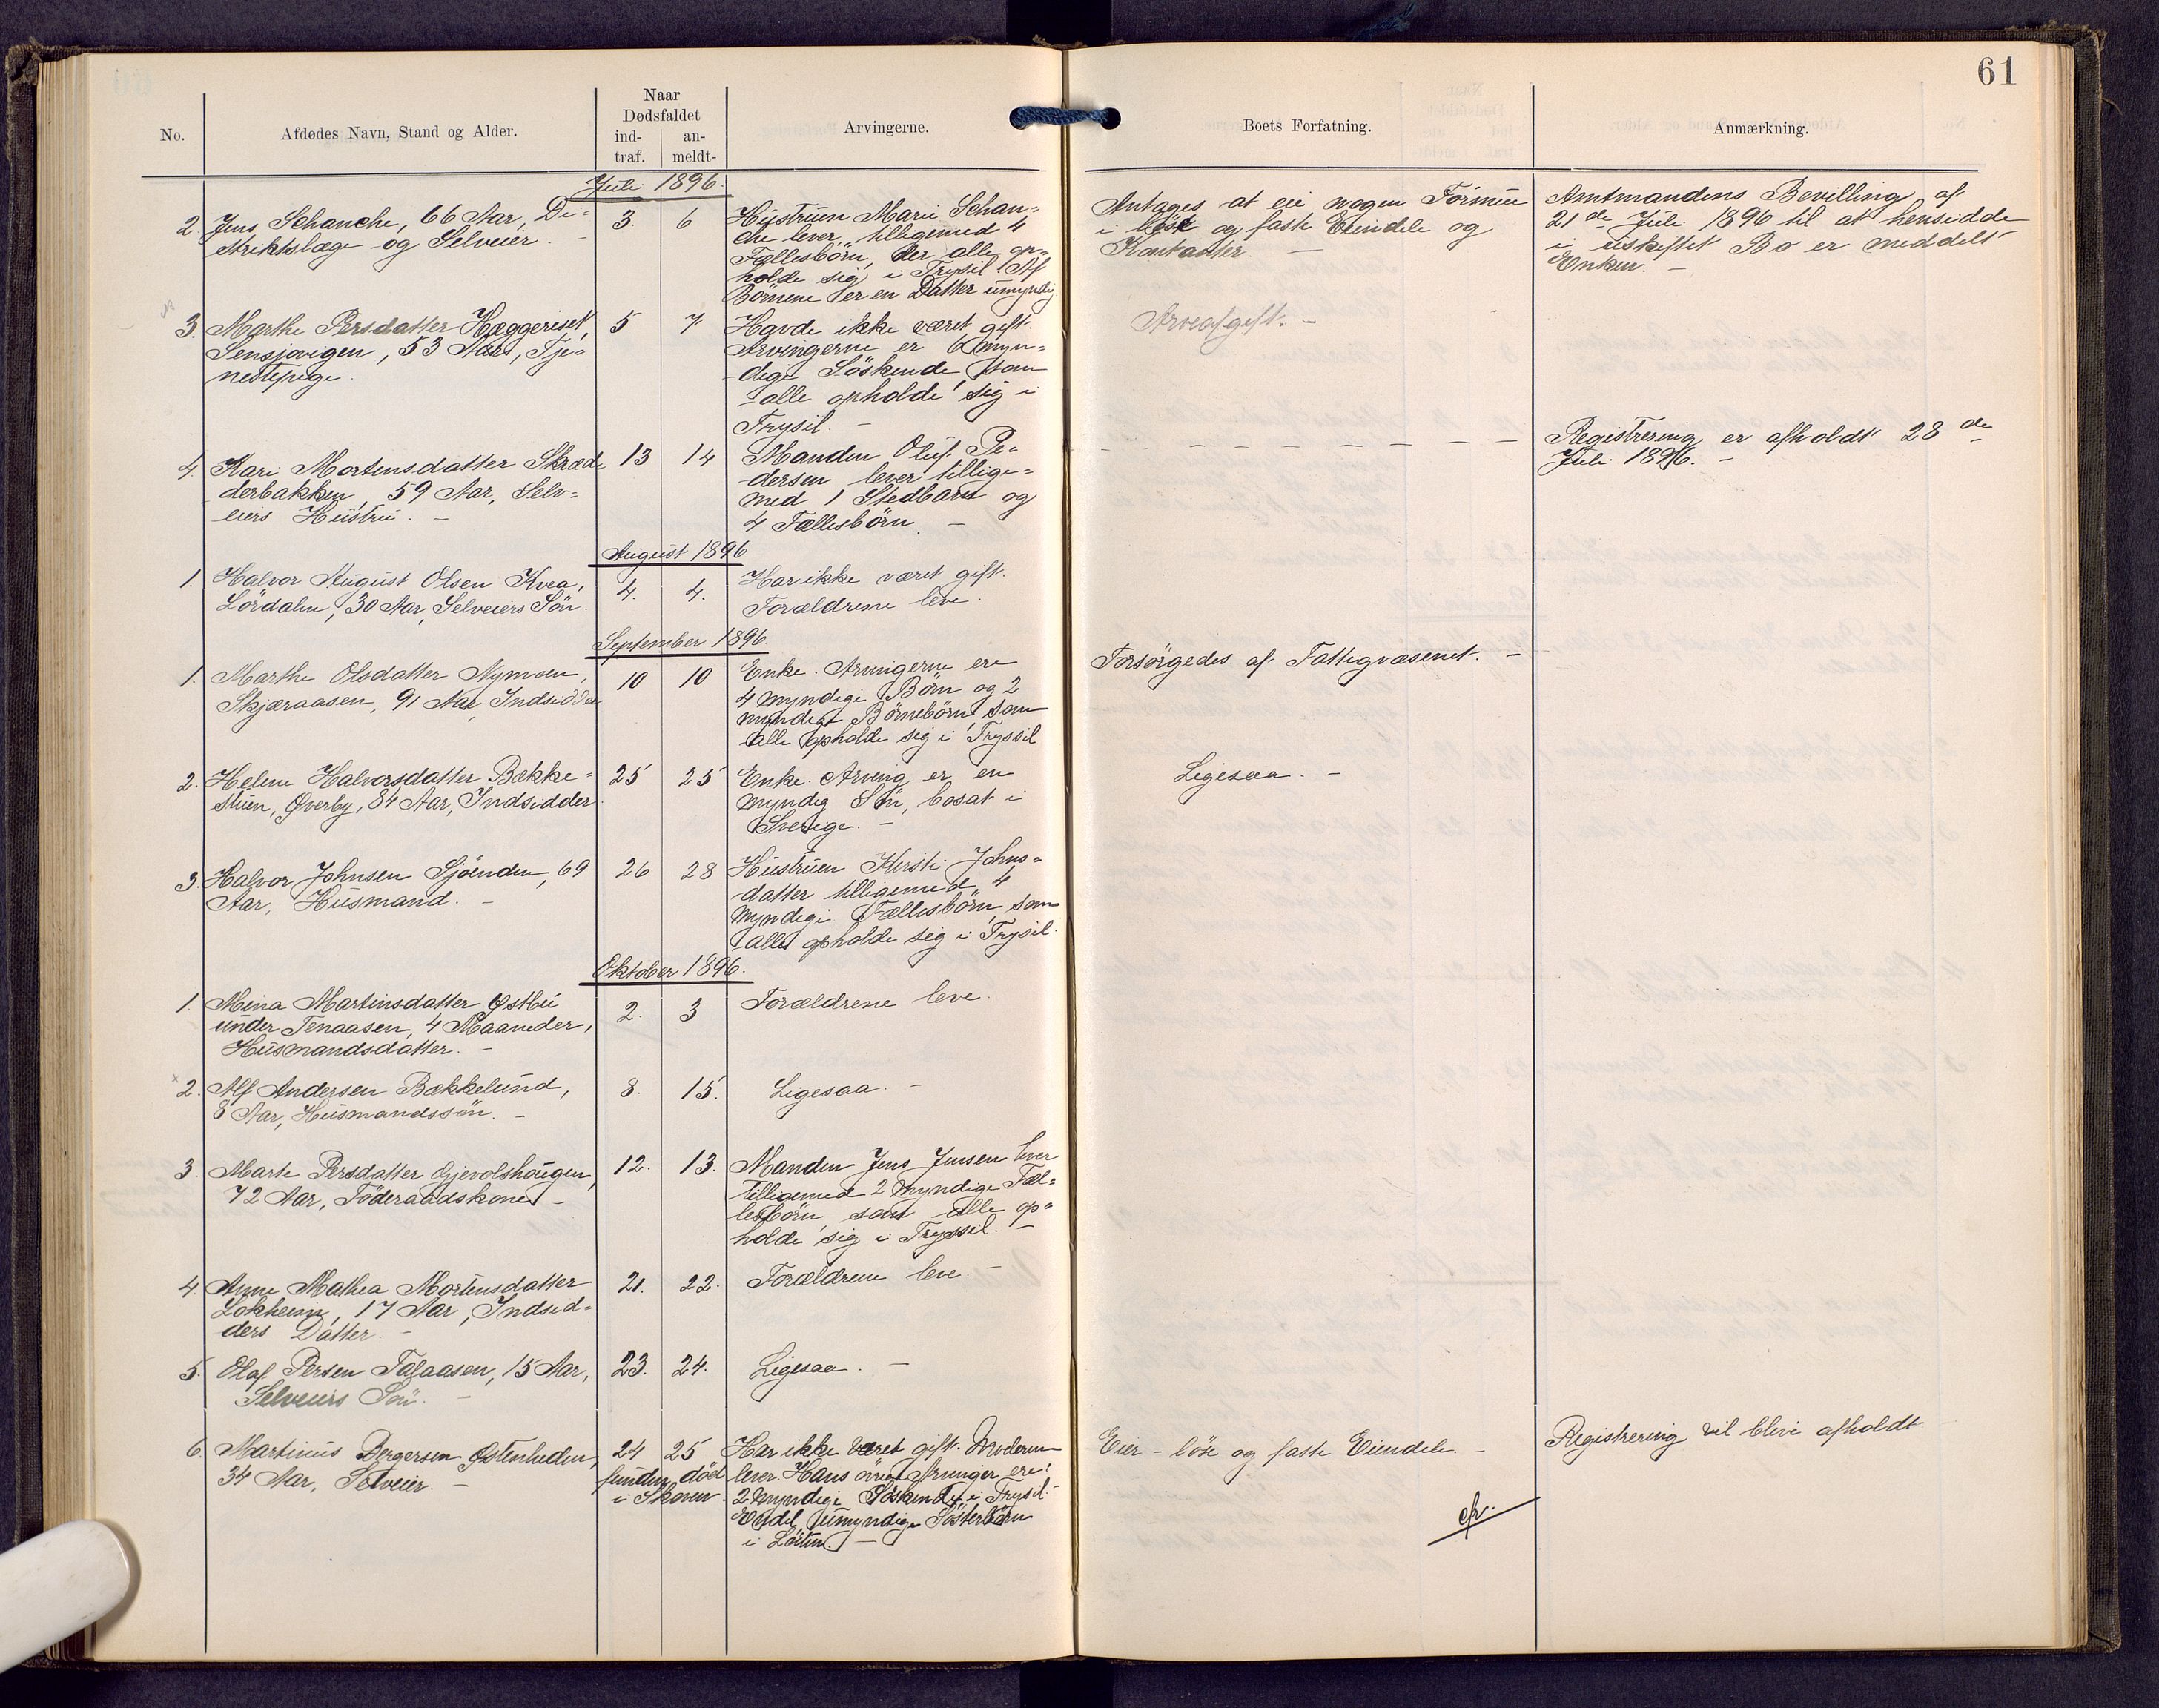 61
No.
Afdødes Navn, Stand og Alder.
Naar
Dødsfaldet
ind-
traf.
an-
meldt-
Arvingerne.
Boets Forfatning.
Anmærkning.
Juli 1896.
2. Jens Schanche, 66 Aar, Di=
striktslæge og Selveier. -
3. 6
Hüstrüen Marie Schan=
che lever tilligemed 4
Fællesbörn, der alle op=
holde sig i Trysil. Af
Börnene er en Datter ümyndig
Antages at eie nogen Formüe
i löst og faste Eiendele og
Kontanter. -
Amtmandens Bevilling af
21de Juli 1896 til at hensidde
i üskiftet Bo er meddelt
Enken. -
3. Marthe Persdatter Hæggeriset,
Sensjøvigen, 53 Aars, Tje=
nestepige.
5 7
Havde ikke været gift.
Arvingerne er 6 myn=
dige Söskende som
alle opholde sig i
Trysil. -
Arveafgift. -
4. Kari Mortensdatter Skræd=
derbakken, 59 Aar, Selv=
eiers Hüstrü. -
13 14
Manden Oluf Pe=
dersen lever tillige=
med 1 Stedbarn og
4 Fællesbörn. -
- - - - - - - - -
Registrering er afholdt 28de
Juli 1896. -
August 1896
1. Halvor August Olsen Kvea,
Lördalen, 30 Aar, Selveiers Sön.
4. 4.
Har ikke været gift.
Forældrene leve.
September 1896
1. Marthe Olsdatter Nymoen,
Skjæraasen, 91 Aar, Indsidder
10 10
Enke. Arvingerne ere
4 myndige Börn og 2
myndige Börnebörn som
alle opholde sig i Tryssil
Forsörgedes af Fattigvæsenet. -
2. Helene Halvorsdatter Bække=
stüen, Øverby, 84 Aar, Indsidder.
25 25
Enke. Arving er en
myndig Sön, bosat i
Sverige. -
Ligesaa. -
3. Halvor Johnsen Sjöenden, 69
Aar, Hüsmand. -
26 28
Hüstrüen Kirsti Johns=
datter tilligemed 4
myndige Fællesbörn som
alle opholde sig i Trysil.
Oktober 1896.
1. Mina Martinsdatter Østbü
ünder Tenaasen, 4 Maaneder,
Hüsmandsdatter. -
2. 3
Forældrene leve.
2. Alf Andersen Bækkelund,
8 Aar, Hüsmandssön. -
8. 15.
Ligesaa. -
3. Marte Persdatter Gjevolshaugen,
72 Aar, Föderaadskone -
12. 13.
Manden Jens Jensen lever
tilligemed 2 myndige Fæl=
lesbörn som alle op=
holde sig i Tryssil. -
4. Anne Mathea Mortensdatter
Lokheim, 17 Aar, Indsid=
ders Datter. -
21. 22.
Forældrene leve. -
5. Olaf Persen Talaasen, 15 Aar,
Selveiers Sön. -
23. 24.
Ligesaa. -
6. Martinüs Bergersen Østenheden,
34 Aar, Selveier. -
24 25
funden död
i Skoven
Har ikke været gift. Moderen
lever. Hans övrige Arvinger ere:
2 myndige Söskende i Trysil.
Endel ümyndige Sösterbörn
i Löiten. -
Eier löse og faste Eiendele. -
Registrering vil blive afholdt